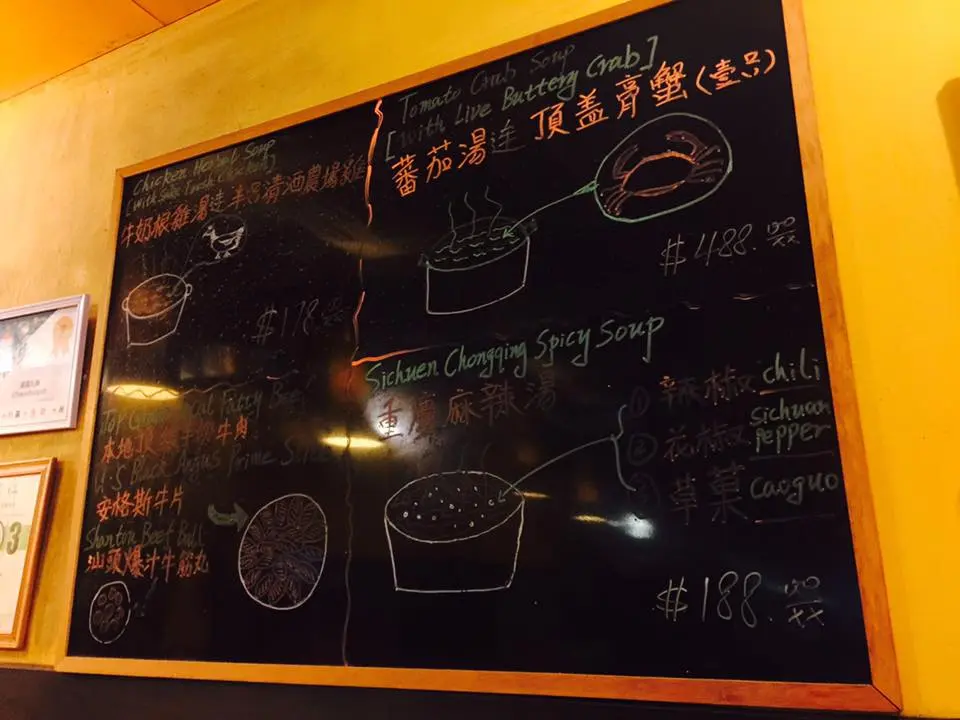 Chicken Herbal Soup
牛奶根雞湯连半只清酒農場雞
$178.00/xx
Tomato Crab Soup
[with Live Buttery Crab]
蕃茄湯连 頂盖膏蟹(壹只)
$488.00/xx
Local Fatty Beef
本地頂級手切牛肉
U.S Black Angus Prime Slice
安格斯牛片
Shanton Beef Ball
汕頭爆汁牛筋丸
Sichuen Chongqing Spicy Soup
重慶麻辣湯
① 辣椒 chili
② 花椒 Sichuan pepper
③ 草菓 Caoguo
$188.00/xx